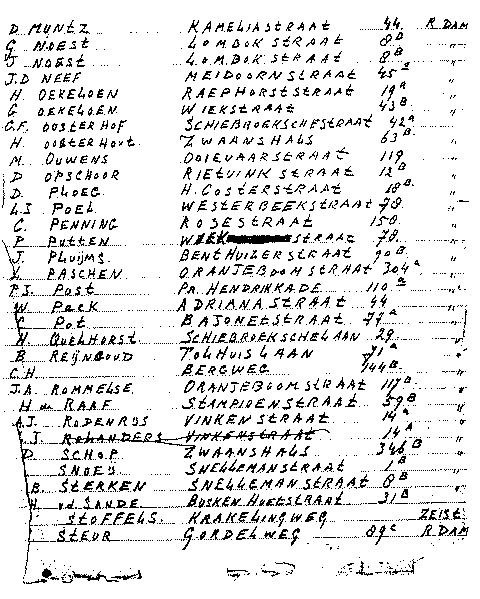 D MUNTZ KAMELIASTRAAT 44. R DAM
G NOEST LOMBOKSTRAAT 8B "
J NOEST LOMBOKSTRAAT 8B "
J.D NEEF MEIDOORNSTRAAT 45a "
H OEKELOEN RAEPHORSTSTRAAT 19a "
G OEKELOEN WIEKSTRAAT 43B "
G.F. OOSTERHOF SCHIEBROEKSCHESTRAAT 42a "
H. OOSTERHOUT ZWAANSHALS 63B "
M. OUWENS OOIEVAARSTRAAT 119 "
D OPSCHOOR RIETVINKSTRAAT 12B "
D. PLOEG H. COSTERSTRAAT 18B "
L.S POEL WESTERBEEKSTRAAT 78. "
C. PENNING ROSESTRAAT 150. "
P PUTTEN STRAAT 78. "
J. PLUIJMS BENTHUIZERSTRAAT 90B "
V. PASCHEN ORANJEBOOMSTRAAT 304a "
P.J. POST PR. HENDRIKKADE 110a "
W. PECK ADRIANASTRAAT 44 "
C POT BAJONETSTRAAT 77a "
N. QUELHORST SCHIEBROEKSCHELAAN 29. "
B REIJNGOUD TOLHUISLAAN 71a "
C.H BERGWEG 144B. "
J.A. ROMMELSE ORANJEBOOMSTRAAT 117B "
H de RAAF STAMPIOENSTRAAT 59B "
A.J. RODENRIJS VINKENSTRAAT 14a "
J. ROLANDERS VINKENSTRAAT 14A "
D. SCHOP ZWAANSHALS 346B "
SNOEIJ SNELLEMANSTRAAT 1B "
B. STERKEN SNELLEMANSTRAAT 8B "
H v.d. SANDE BUSKEN HUETSTRAAT 31B "
STOFFELS. KRAKELINGWEG ZEIST
STEUR GORDELWEG 89c R DAM